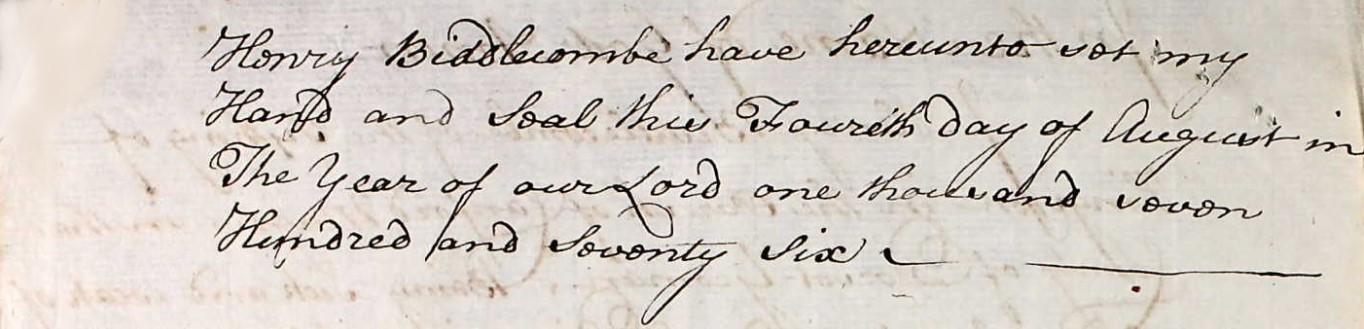 Henry Biddlecombe have hereunto set my
Hand and Seal this Fourth day of August in
The Year of our Lord one thousand seven
Hundred and Seventy Six